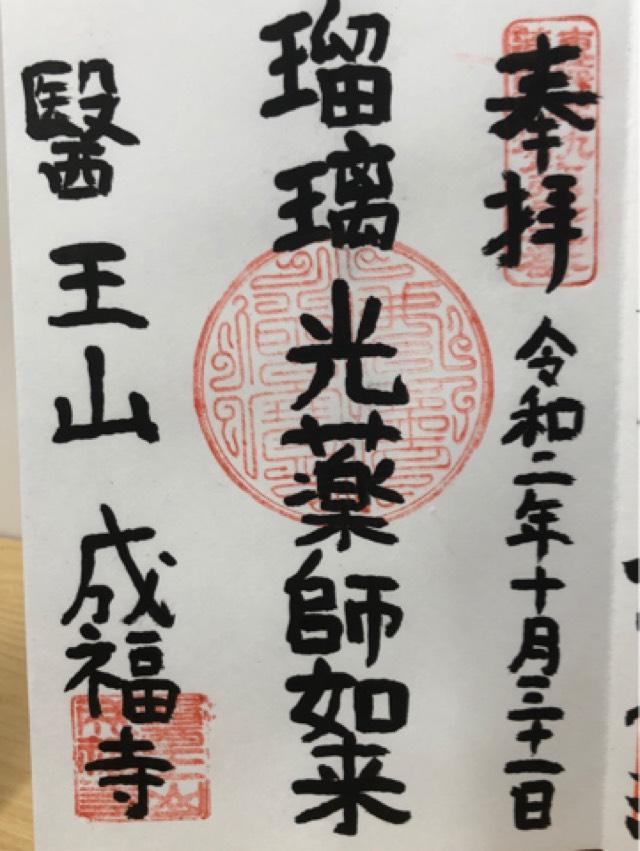 奉拝
令和二年十月三十一日
瑠璃光薬師如来
醫王山 成福寺